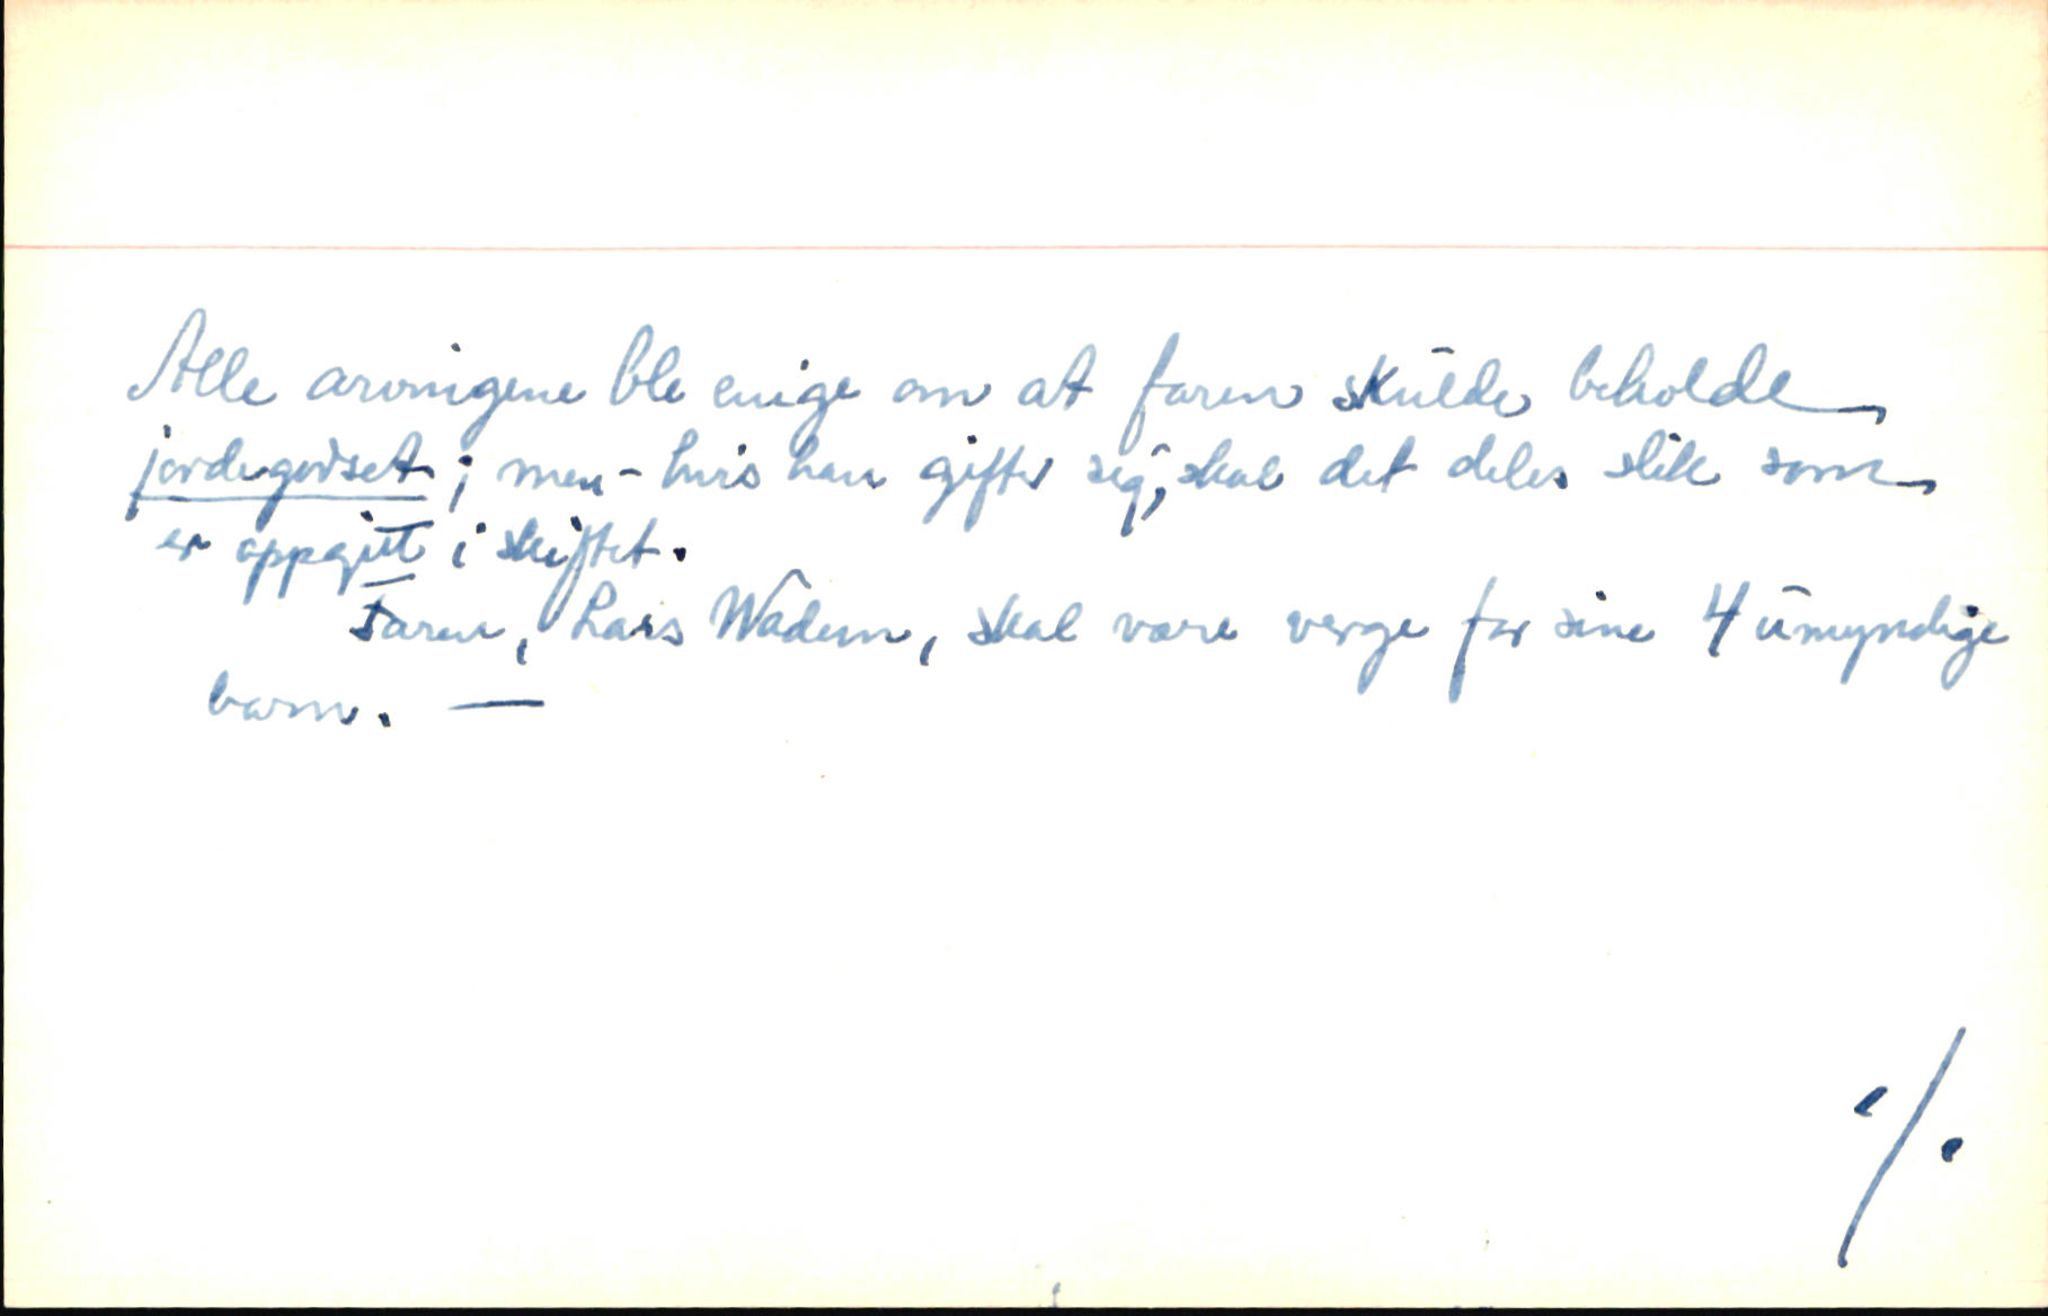 Alle arvingene ble enige om at faren skulde beholde
jordegodset; men - hvis han gifter seg, skal det deles slik som
er oppgitt i skiftet.
Faren, Lars Wadem, skal være verge for sine 4 umyndige
barn. —
./.